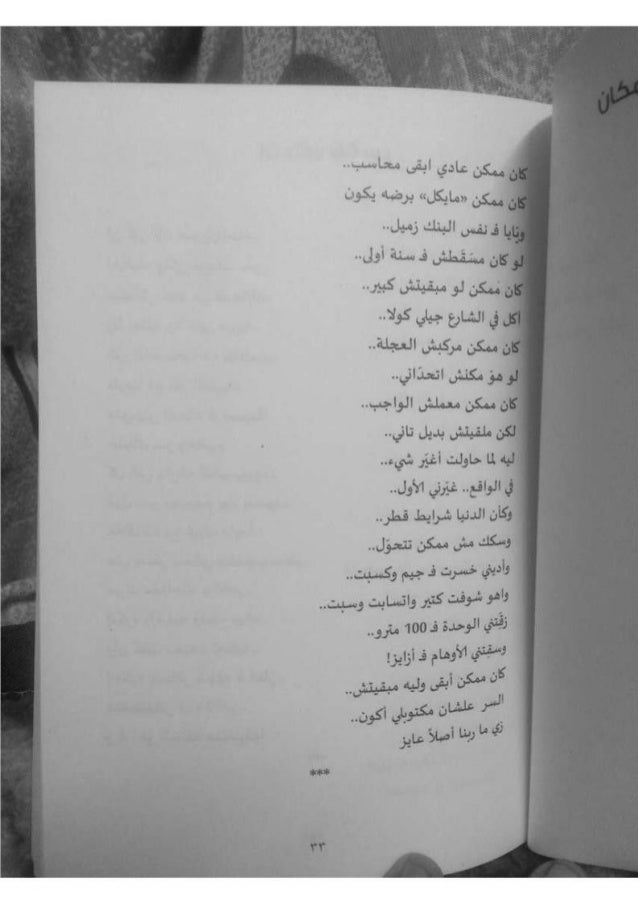 مكان
كان ممكن عادي ابقى محاسب..
كان ممكن «مايكل» برضه يكون
ويّايا فـ نفس البنك زميل..
لو كان مسَقَطش فـ سنة أولى..
كان مَمكن لو مبقيتش كبير..
أكل في الشارع جيلي كولا..
كان ممكن مركبش العجلة..
لو هوّ مكنش اتحدّاني..
كان ممكن معملش الواجب..
لكن ملقيتش بديل تاني..
ليه لما حاولت أغيّر شيء..
في الواقع.. غيّرني الأول..
وكأن الدنيا شرايط قطر..
وسكك مش ممكن تتحوّل..
وأديني خسرت فـ جيم وكسبت..
واهو شوفت كتير واتسابت وسبت..
زقّتني الوحدة فـ 100 مترو..
وسفِتني الأوهام فـ أزايز!
كان ممكن أبقى وليه مبقيتش..
السر علشان مكتوبلي أكون..
زي ما ربنا أصلاً عايز
***
٣٣